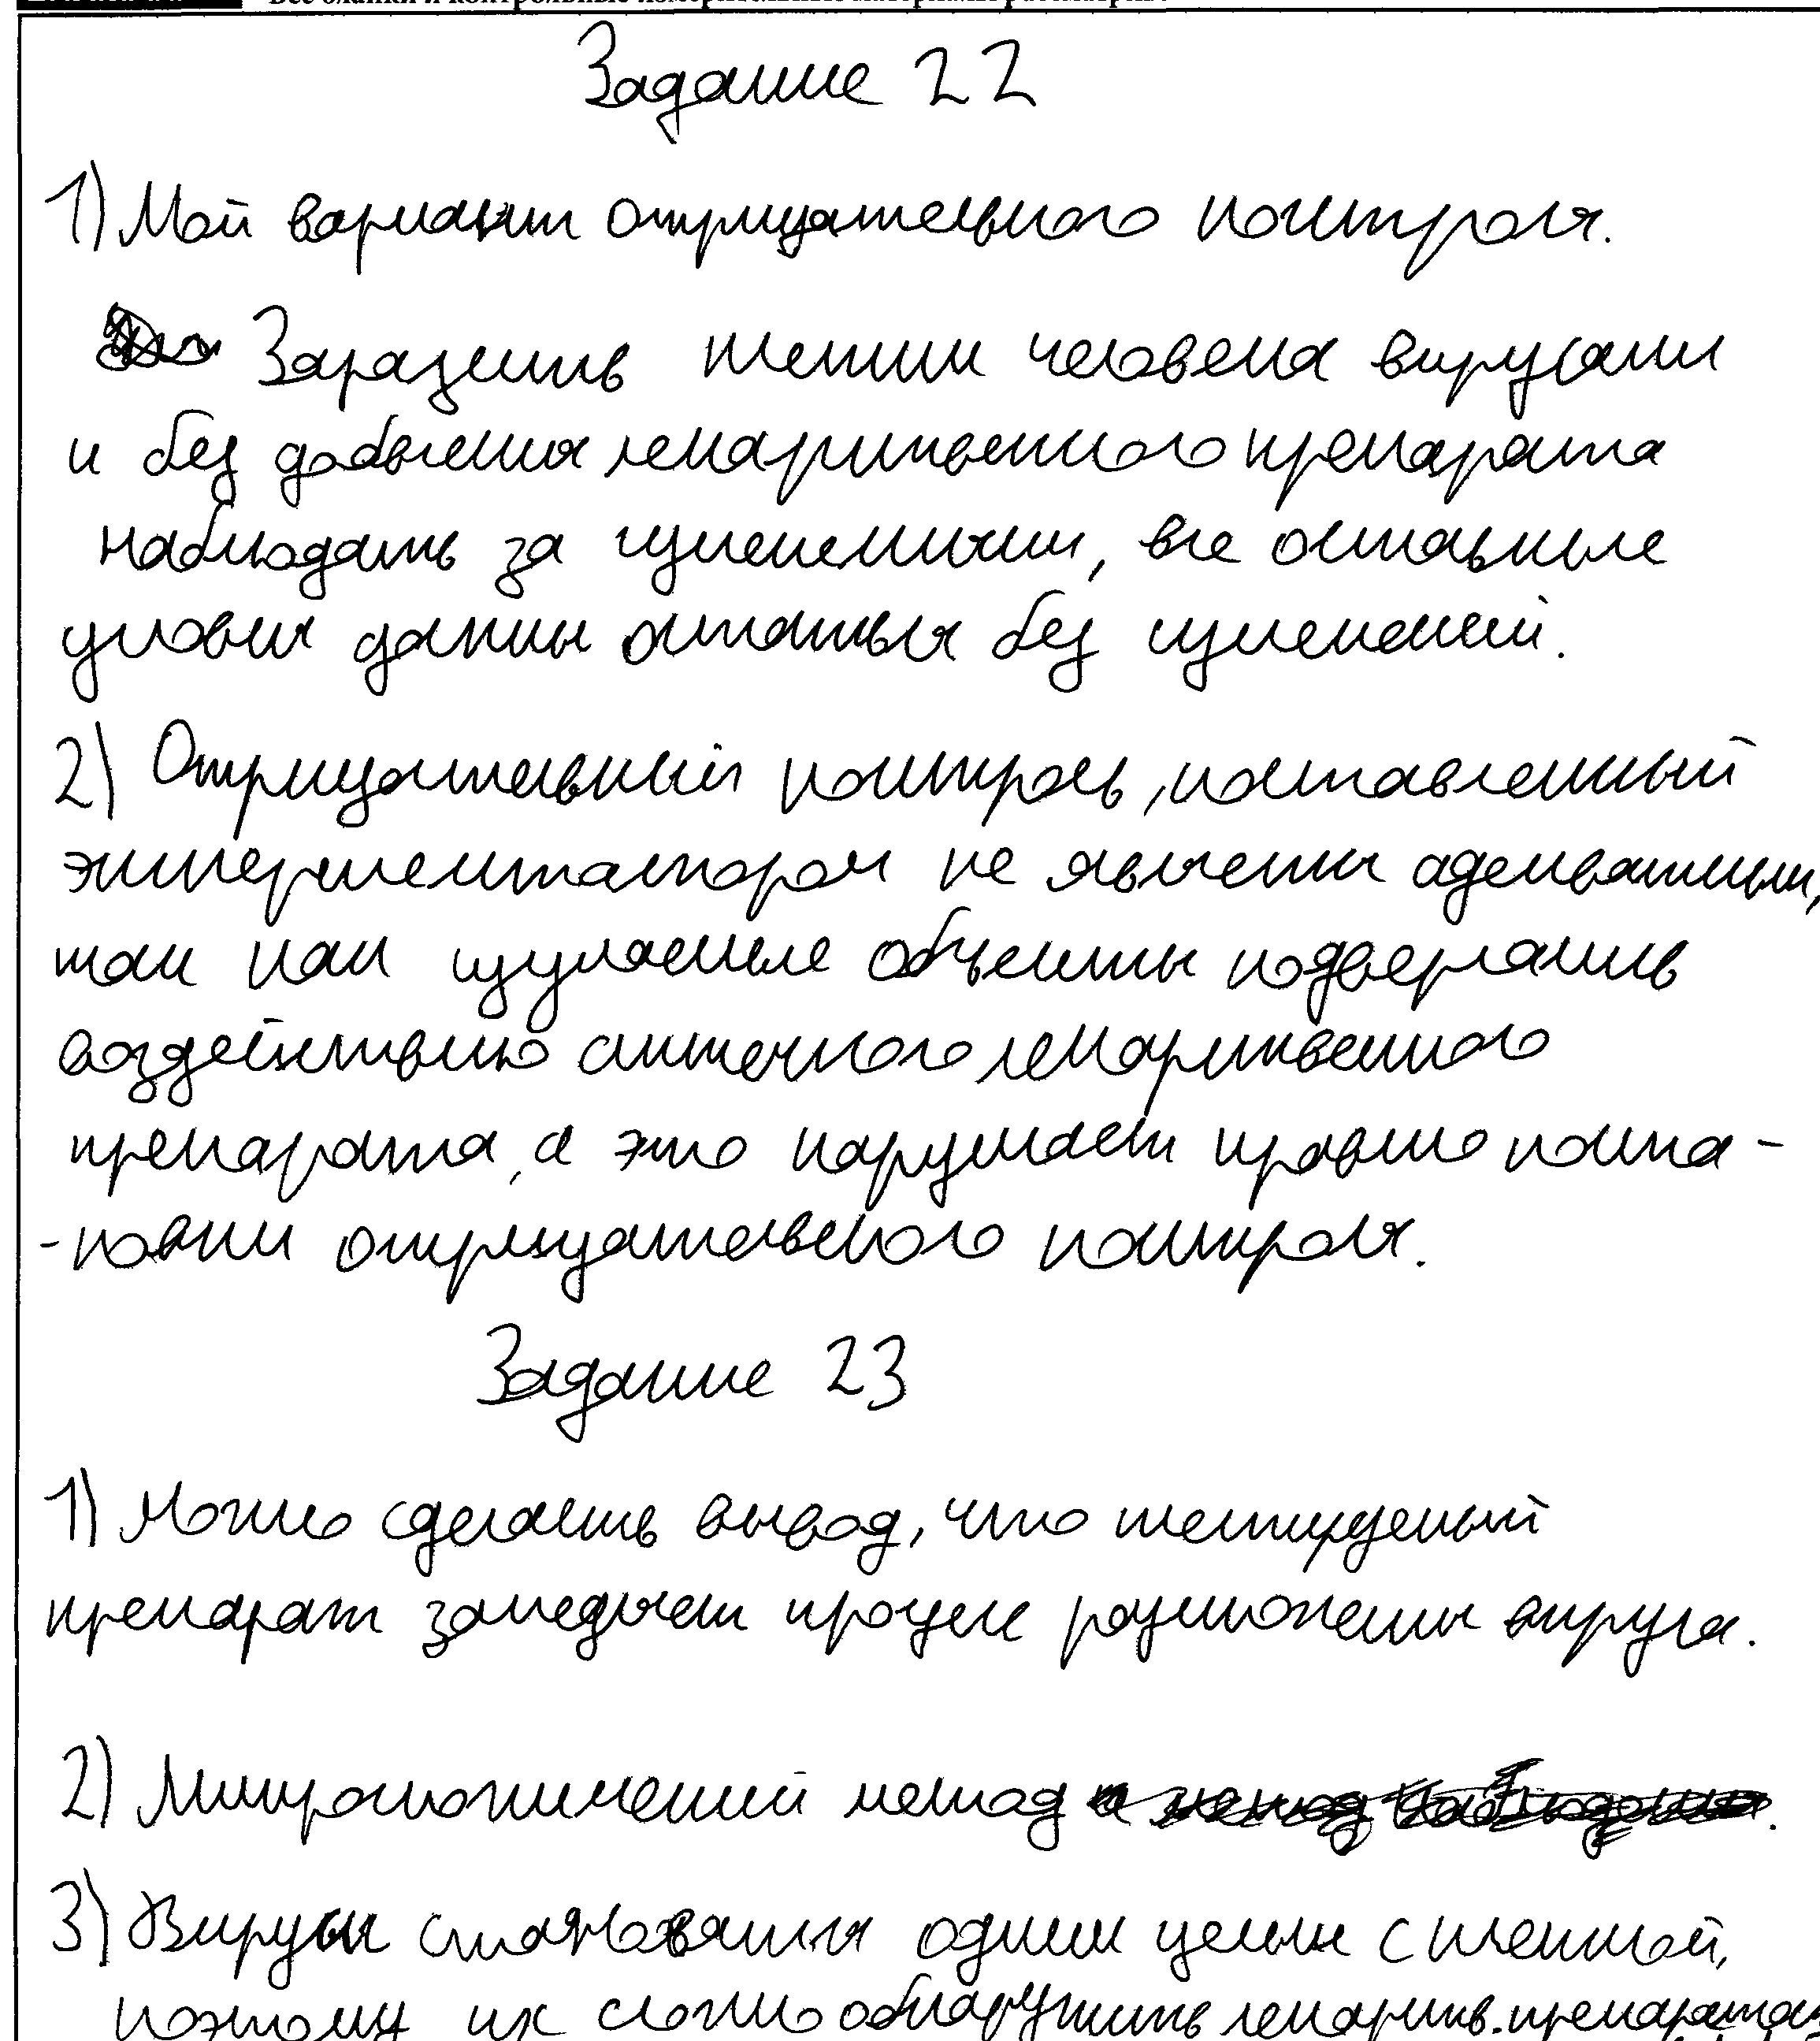 Задание 22
1) Мой вариант отрицательного контроля.
Заразить клетки человека вирусами
и без добвления лекарственного препарата
наблюдать за изменениями, все остальные
условия должны остаться без изменений.
2) Отрицательный контроль, поставленный
экспериментатором не является адекватным,
так как изучаемые объекты подвергались
воздействию синтечного лекарственного
препарата, а это нарушает правило поста-
-новки отрицательного контроля.
Задание 23
1) Можно сделать вывод, что тестируемый
препарат замедляет процесс размножения вируса.
2) Микроскопический метод
3) Вирусы становятся одним целым с клеткой,
поэтому их сложно обнаружить лекарств. препаратам